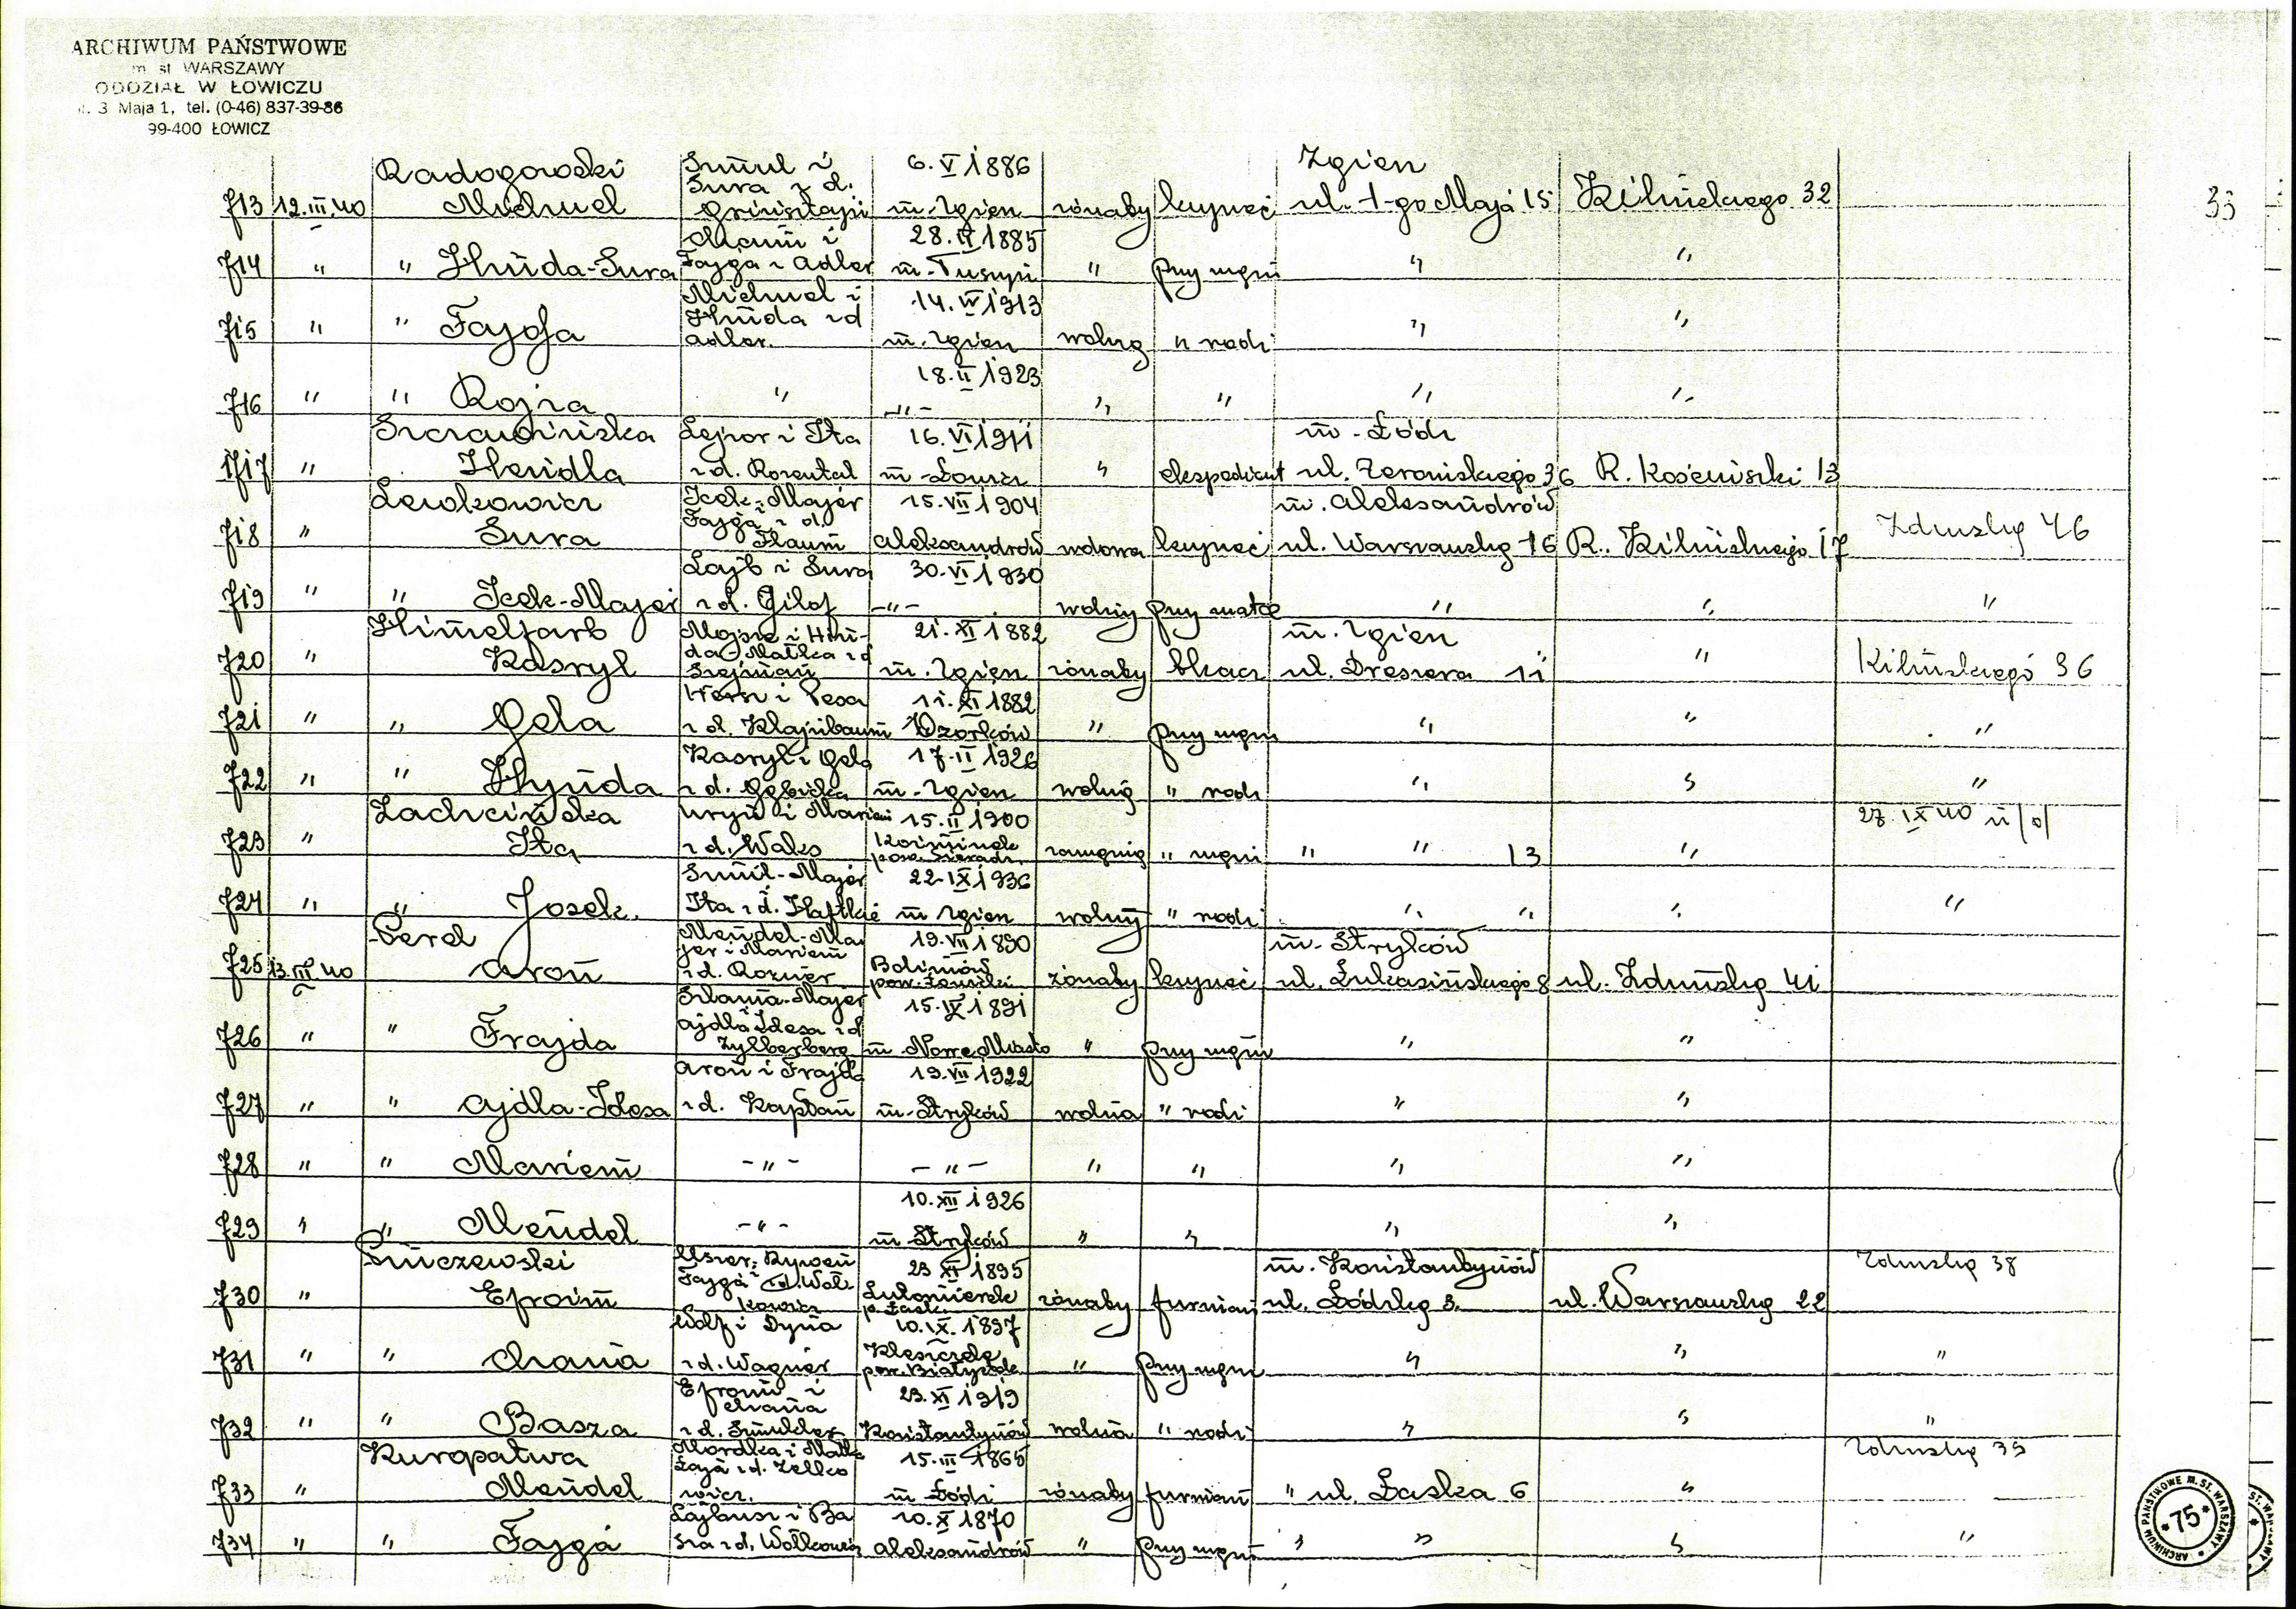 ARCHIWUM PAŃSTWOWE
m. st. WARSZAWY
ODDZIAŁ W ŁOWICZU
3 Maja 1, tel. (0-46) 837-39-86
99-400 ŁOWICZ
33
Radogowski Smul i 6.V 1886 Zgierz
Sura z d.
713 12.III.40 Michuel Grinsztajn m. Zgierz żonaty kupiec ul. 1-go Maja 15 Kilińskiego 32
i 28.IV 1885
714 " " Hinda-Sura Fajga z Adler m. Tuszyn " przy mężu " "
Michuel i 14.IV 1913
Hinda z d
715 " " Fajga Adler. m. Zgierz wolny " rodz " "
18.II 1923
716 " " Rojza " -"- " " " "
Szczawińska Lejzor i Ita 16.VI 1911 m. Łódź
717 " Hendla z d. Rozental m Łowicz " ekspedient ul. Żeromskiego 36 R. Kościuszki 13
Lewkowicz Icek-Majer 15.VII 1904 m. Aleksandrów
Fajga z d.
718 " Sura Flaum Aleksandrów wdowa kupiec ul. Warszawska 16 R. Kilińskiego 17 Zduńska 46
Lajb i Sura 30.VI 1930
719 " " Icek-Majer z d. -"- wolny przy matce " " "
Himelfarb Mojsze i Hin- 21.XI 1882 m. Zgierz
da-Małka z d
720 " Kasryl Szejman m. Zgierz żonaty tkacz ul. Dreszera 11 " Kilińskiego 36
Hersz i Pesa 11.XI 1882
721 " " Gela z d. Klajnbaum Ozorków " przy mężu " " "
Kasryl i Gela 17.II 1926
722 " " Hynda z d. m. Zgierz wolny " rodz " " "
i Mariem 15.II 1900 27.IX 40
723 " Ita z d. Waks pow. Sieradz zamężna " mężu " " 13 "
Smul-Majer 22.IX 1936
724 " " Josek. Ita z d. m Zgierz wolny " rodz " " " "
Perel Mendel-Ma 19.VII 1890 m. Stryków
jer i Mariem
725 13.III 40 Aron z d. Rozner Bolimów pow. Łowicki żonaty kupiec ul. Łukasińskiego 8 ul. Zduńska 41
Szlama-Majer 15.IX 1891
Ajdla Idesa z d
726 " " Frajda Zylberberg m. Nowe Miasto " przy mężu " "
Aron i Frajda 19.VII 1922
727 " " Ajdla-Idesa z d. Kapłan m. Stryków wolna " rodz " "
728 " " Mariem -"- -"- " " " "
10.XII 1926
729 " " Mendel -"- m Stryków " " " "
23 XI 1895 m. Konstantynów Zduńska 38
Fajga z d. Wol
730 " Efroim kowicz Lutomiersk p. Łask żonaty furman ul. Łódzka 3. ul. Warszawska 22
Wolf i Dyna 10.IX. 1897
731 " " Chana z d. Wagner Kleszczele pow. Białystok " przy mężu " " "
Efroim i 23.XI 1919
Chana
732 " " Basza z d. Konstantynów wolna " rodz " " "
Kuropatwa Mordka i Małka 15.III 1865 Zduńska 35
Łaja z d. Zelko
733 " Mendel wicz. m Łódź żonaty furman " ul. Łaska 6 "
Lajbusz i Ba 10.X 1870
734 " " Fajga sza z d. Wołkowicz Aleksandrów " przy mężu " " " "
ARCHIWUM PAŃSTWOWE M. ST. WARSZAWY * 75 *